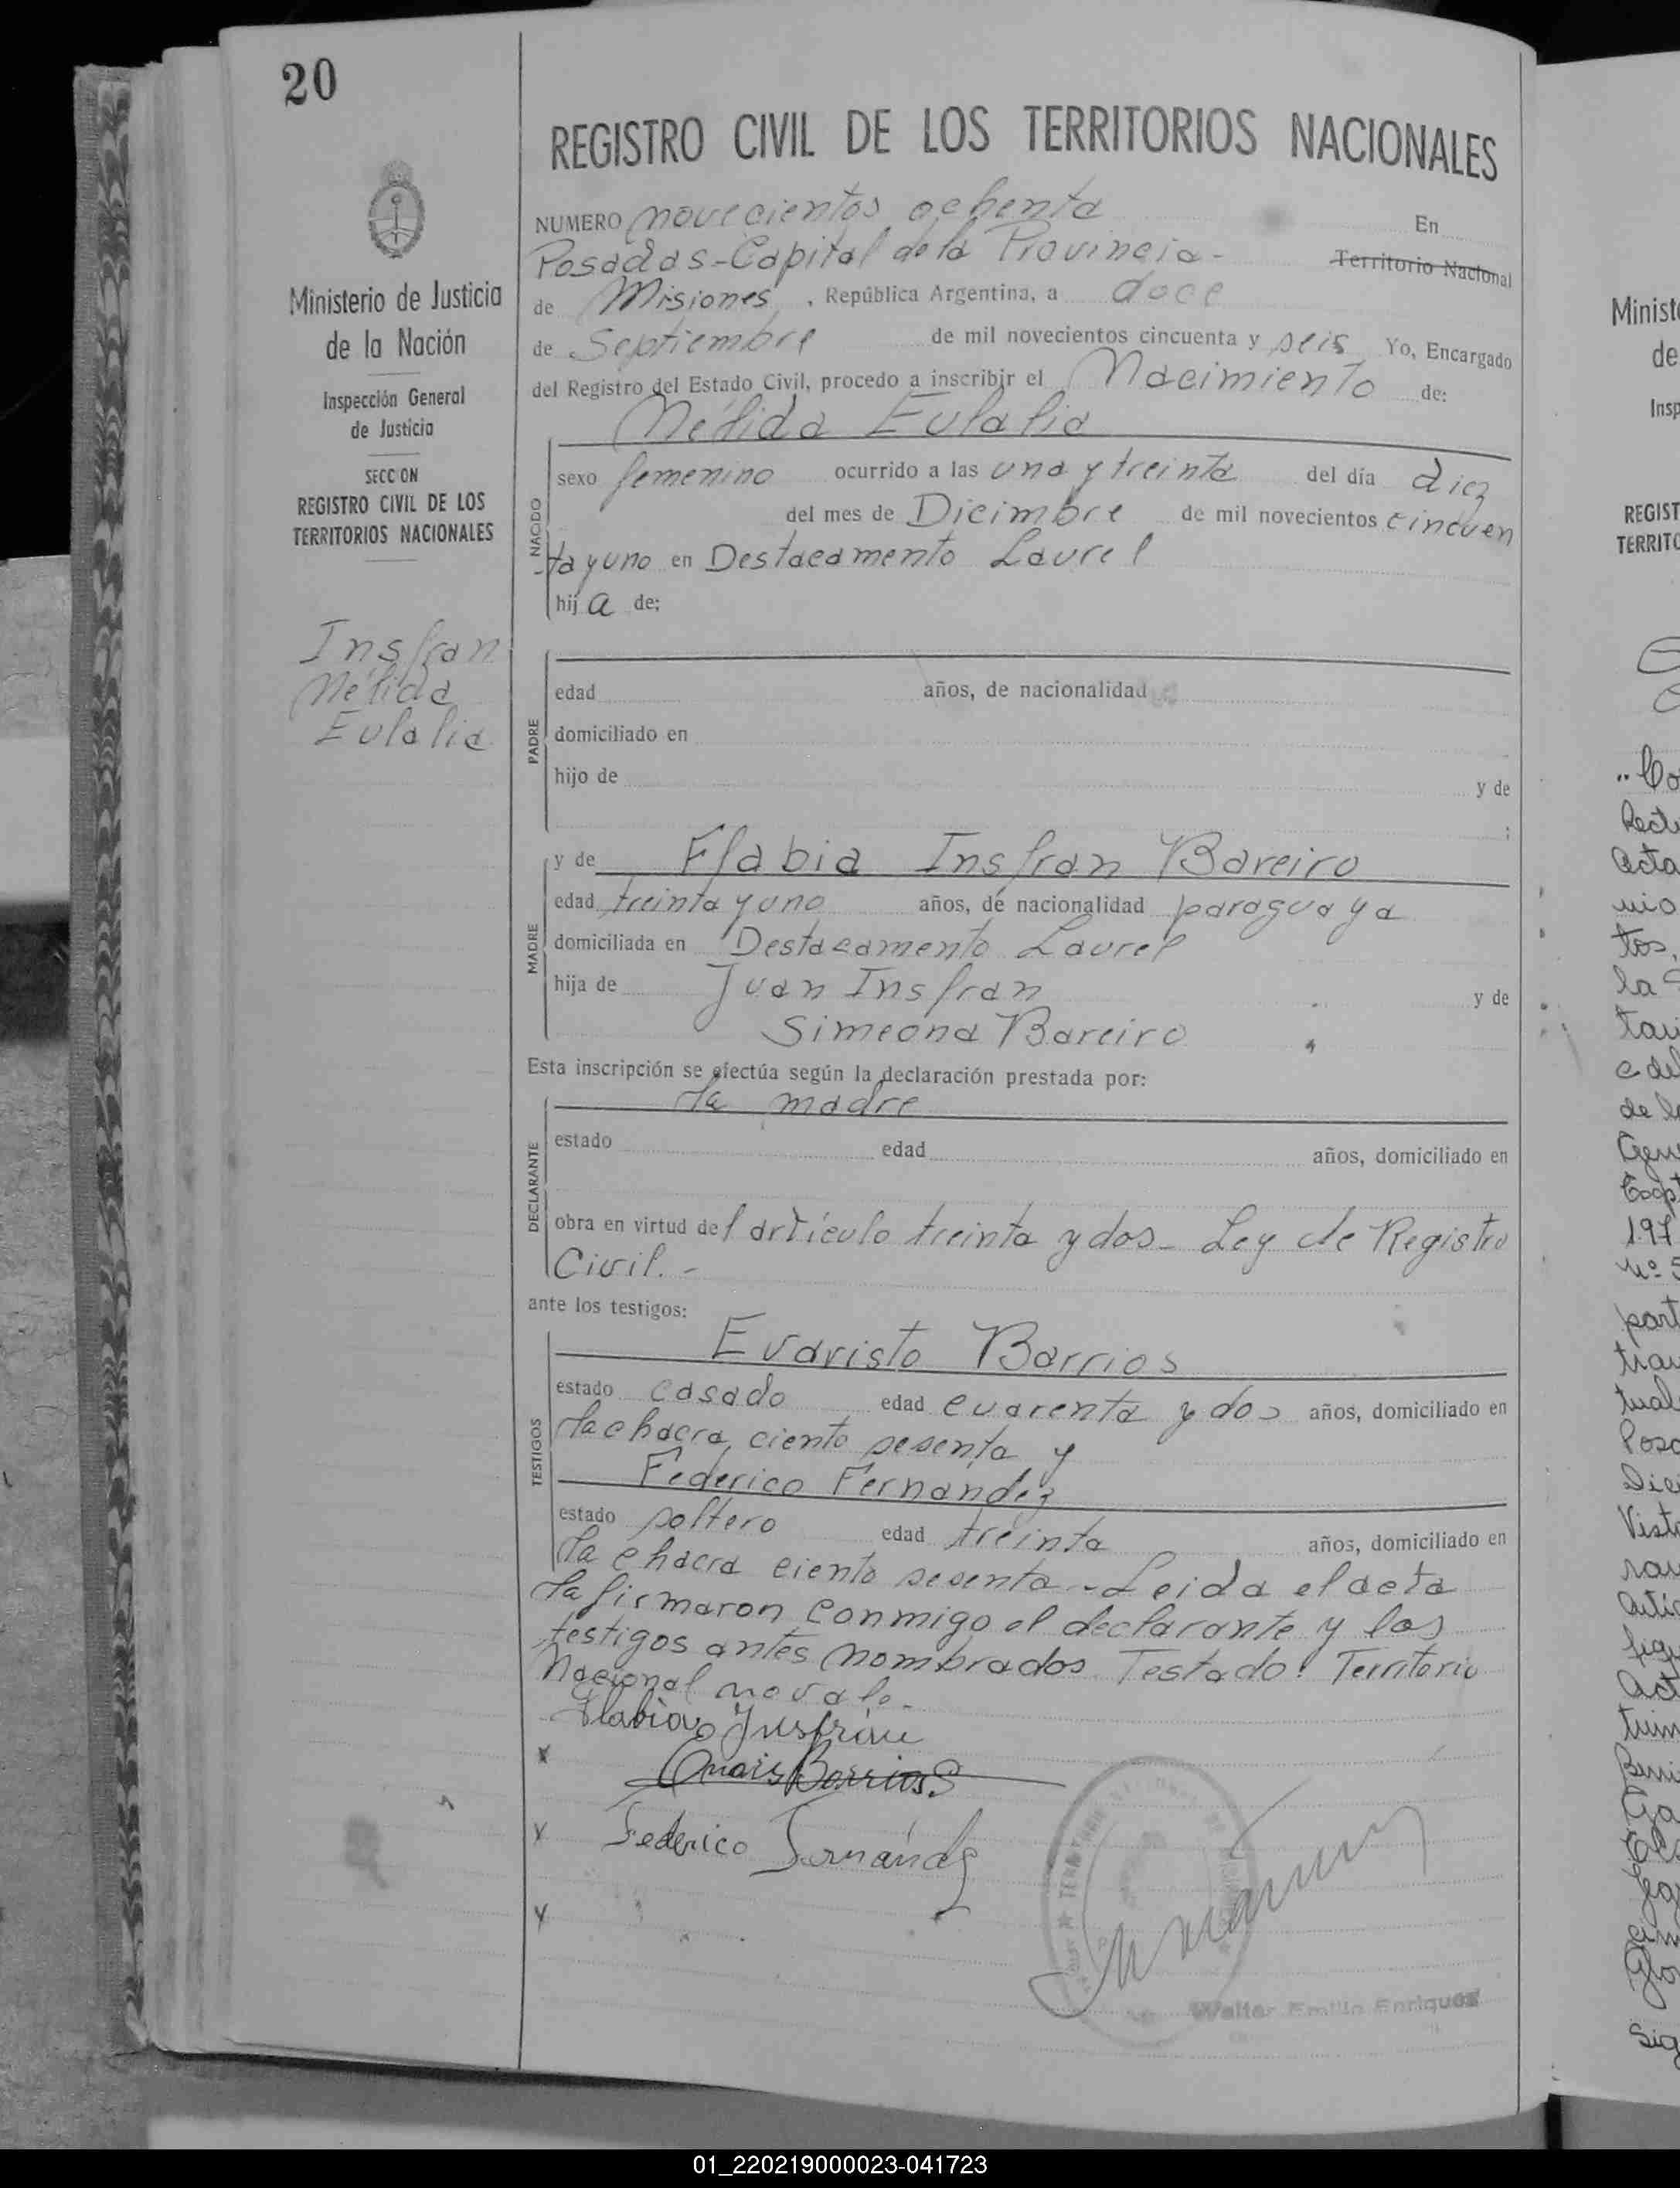 20
Ministerio de Justicia
de la Nación
Inspección General
de Justicia
SECCION
REGISTRO CIVIL DE LOS
TERRITORIOS NACIONALES
Insfran
Nélida
Eulalia
REGISTRO CIVIL DE LOS TERRITORIOS NACIONALES
NUMERO novecientos ochenta En
Posadas-Capital de la Provincia- Territorio Nacional
de Misiones, República Argentina, a doce
de Septiembre de mil novecientos cincuenta y seis Yo, Encargado
del Registro del Estado Civil, procedo a inscribir el Nacimiento de:
Nélida Eulalia
NACIDO
sexo femenino ocurrido a las una y treinta del día diez
del mes de Dicimbre de mil novecientos cincuen
-ta y uno en Destacamento Laurel
hija de;
PADRE
edad años, de nacionalidad
domiciliado en
hijo de y de
;
MADRE
y de Flabia Insfran Bareiro
edad treinta y uno años, de nacionalidad paraguaya
domiciliada en Destacamento Laurel
hija de Juan Insfran y de
Simeona Bareiro
Esta inscripción se efectúa según la declaración prestada por:
la madre
DECLARANTE
estado edad años, domiciliado en
obra en virtud del artículo treinta y dos- Ley de Registro
Civil.-
ante los testigos:
TESTIGOS
Evaristo Barrios
estado casado edad cuarenta y dos años, domiciliado en
la chacra ciento sesenta y
Federico Fernández
estado soltero edad treinta años, domiciliado en
la chacra ciento sesenta.-Leida el acta
la firmaron conmigo el declarante y los
testigos antes nombrados Testado: Territorio
Nacional no vale.-
Flabia Insfrán
x
Barrios
x Federico Fernández
x
Walter Emilio Enriquez
01_220219000023-041723